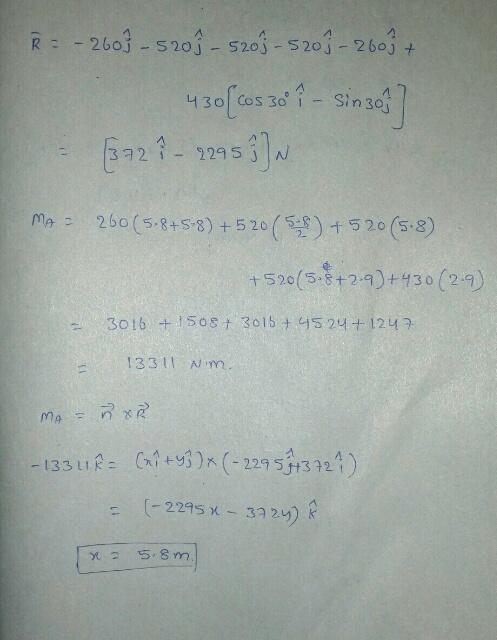 R̄ = -260ĵ - 520ĵ - 520ĵ - 520ĵ - 260ĵ +
430[cos30° î - Sin30ĵ]
= [372 î - 2295 ĵ] N
MA = 260(5.8+5.8) + 520(5.8/2) + 520(5.8)
+520(5.8+2.9)+430(2.9)
= 3016 + 1508 + 3016 + 4524 + 1247
= 13311 N.m.
MA = r⃗ × R⃗
-13311k̂ = (xî+yĵ)×(-2295ĵ+372î)
= (-2295x - 372y) k̂
x = 5.8m.